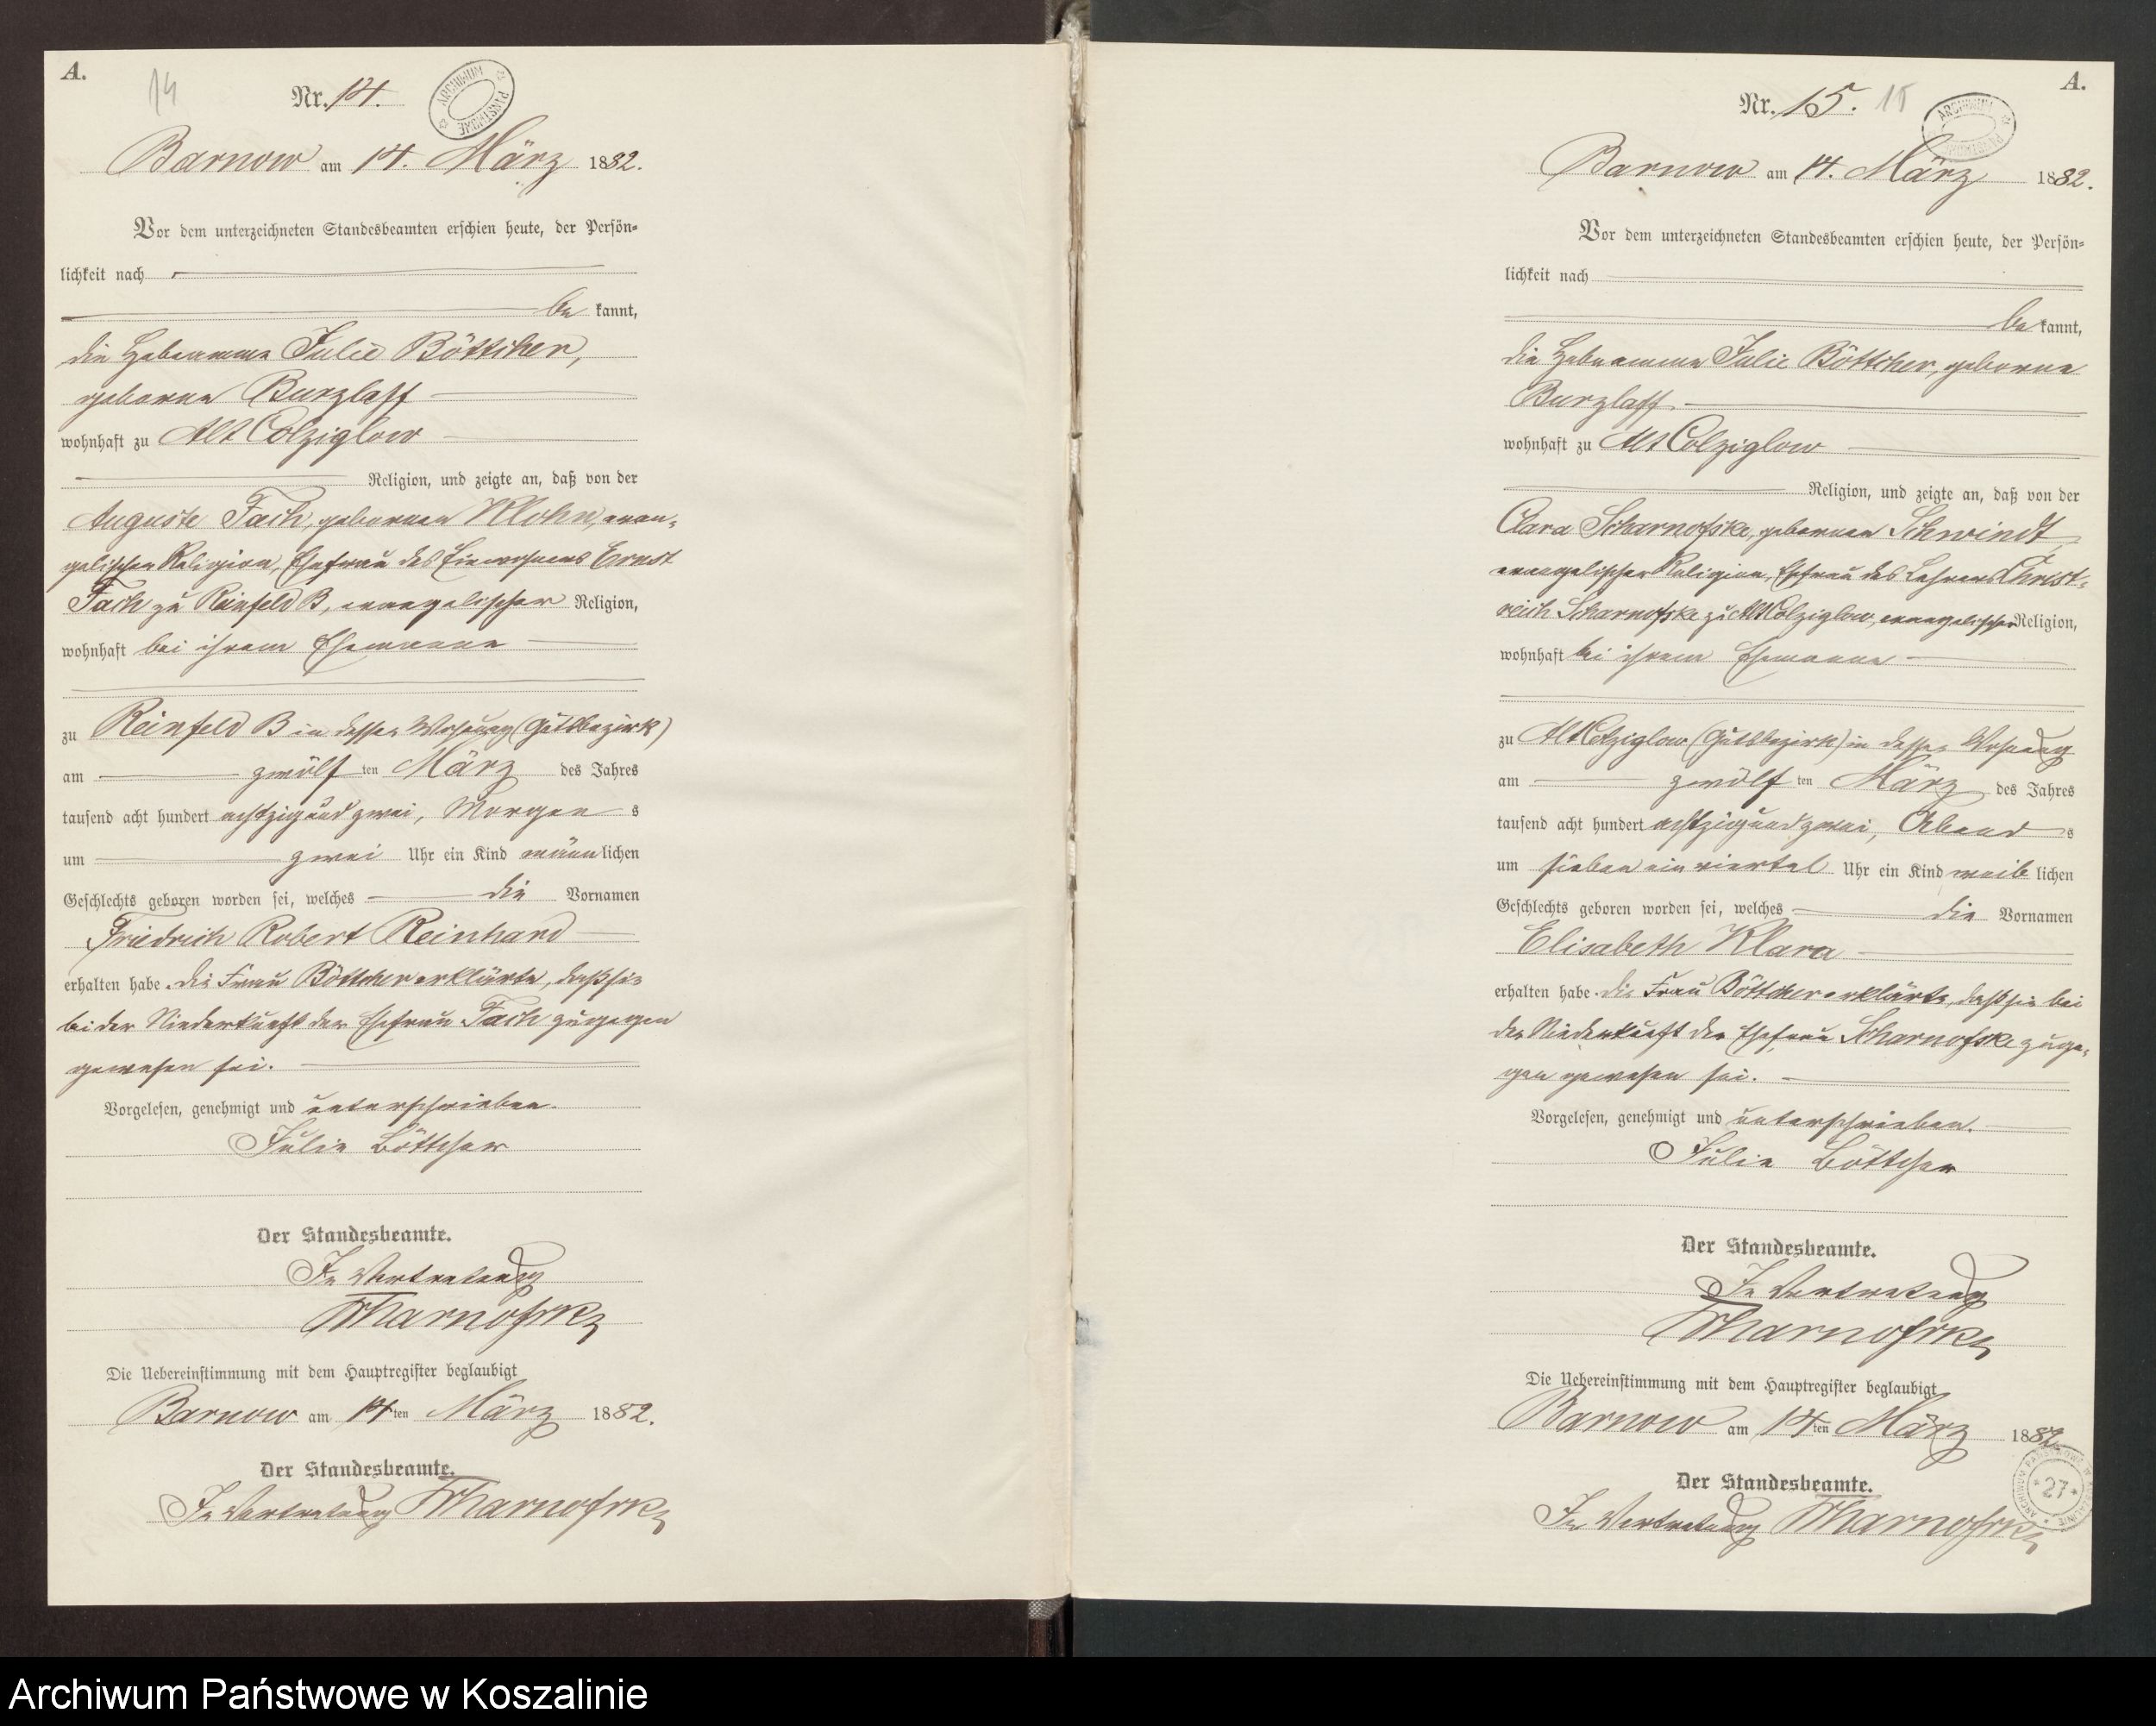 A.
14
Nr. 14.
ARCHIWUM PAŃSTWOWE
Barnow am 14. März 1882.
Vor dem unterzeichneten Standesbeamten erschien heute, der Persön-
lichkeit nach
be kannt,
die Hebeamme Julie Böttcher,
geborne Burzlaff
wohnhaft zu Alt Colziglow
Religion, und zeigte an, daß von der
Auguste Fach, gebornen Klohn, evan-
gelischer Religion, Ehefrau des Einwohners Ernst
Fach zu Reinfeld B, evangelischer Religion,
wohnhaft bei ihrem Ehemanne
zu Reinfeld B in dessen Wohnung (Gutsbezirk)
am zwölf ten März des Jahres
tausend acht hundert achtzig und zwei, Morgen s
um zwei Uhr ein Kind männ lichen
Geschlechts geboren worden sei, welches die Vornamen
Friedrich Robert Reinhard
erhalten habe. Die Frau Böttcher erklärte, daß sie
bei der Niederkunft der Ehefrau Fach zugegen
gewesen sei.
Vorgelesen, genehmigt und unterschrieben.
Julie Böttcher
Der Standesbeamte.
In Vertretung
Scharnofske
Die Uebereinstimmung mit dem Hauptregister beglaubigt
Barnow am 14 ten März 1882.
Der Standesbeamte.
In Vertretung Scharnofske
A.
Nr. 15. 15
ARCHIWUM PAŃSTWOWE
Barnow am 14. März 1882.
Vor dem unterzeichneten Standesbeamten erschien heute, der Persön-
lichkeit nach
be kannt,
die Hebeamme Julie Böttcher, geborne
Burzlaff
wohnhaft zu Alt Colziglow
Religion, und zeigte an, daß von der
Clara Scharnofske, gebornen Schwindt,
evangelischer Religion, Ehefrau des Lehrers
Scharnofske zu Alt Colziglow, evangelischer Religion,
wohnhaft bei ihrem Ehemanne
zu Alt Colziglow (Gutsbezirk) in dessen Wohnung
am zwölf ten März des Jahres
tausend acht hundert achtzig und zwei, Abend s
um sieben ein viertel Uhr ein Kind weib lichen
Geschlechts geboren worden sei, welches die Vornamen
Elisabeth Klara
erhalten habe. Die Frau Böttcher erklärte, daß sie bei
der Niederkunft der Ehefrau Scharnofske zuge-
gen gewesen sei.
Vorgelesen, genehmigt und unterschrieben.
Julie Böttcher
Der Standesbeamte.
In Vertretung
Scharnofske
Die Uebereinstimmung mit dem Hauptregister beglaubigt
Barnow am 14 ten März 1882
Der Standesbeamte.
In Vertretung Scharnofske
ARCHIWUM PAŃSTWOWE W KOSZALINIE
* 27 *
Archiwum Państwowe w Koszalinie